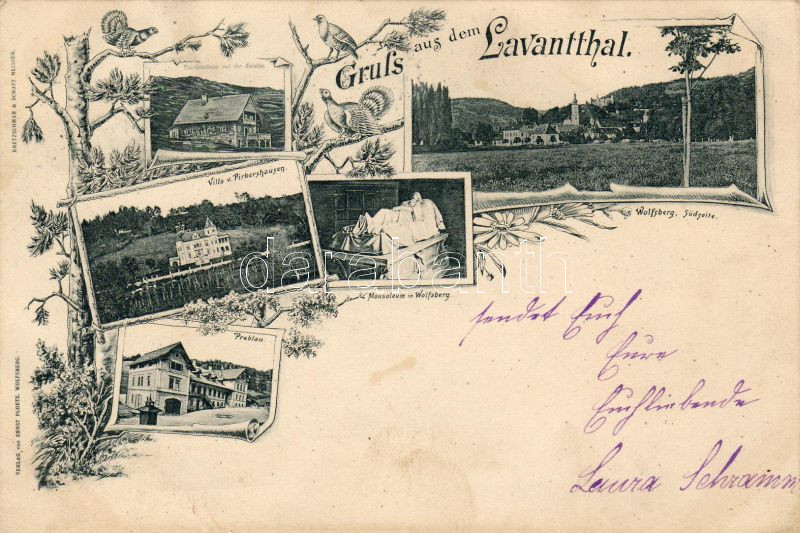 Gruſs aus dem Lavantthal.
Touristenhaus auf der Koralpe.
Villa v. Pirkershausen.
Mausoleum in Wolfsberg.
Wolfsberg, Südseite.
Preblau.
sendet Euch
Eure
Euchliebende
Laura Schramm
darabanth
KRITZSCHMAR & SCHATZ MEISSEN.
VERLAG von ERNST PLOETZ, WOLFSBERG.